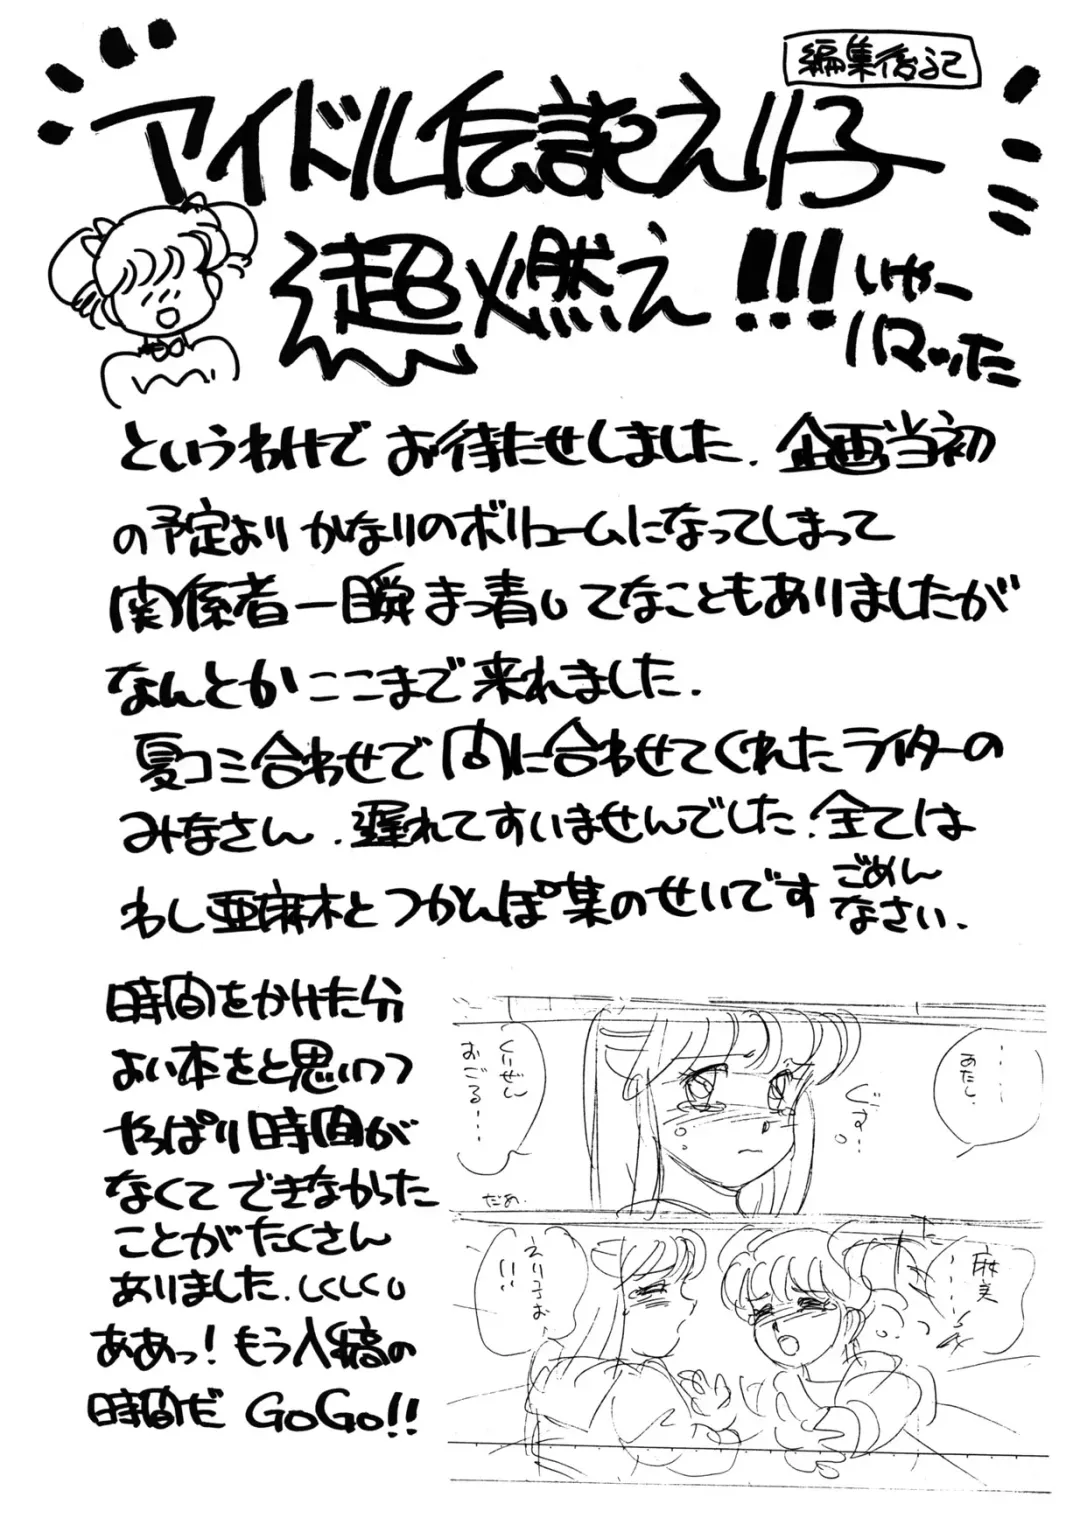 編集後記
アイドル伝説えり子
超燃え!!!
いやー
ハマッた
というわけで お待たせしました. 企画当初
の予定より かなりのボリュームになってしまって
関係者一瞬まっ青してなこともありましたが
なんとかここまで来れました.
夏コミ合わせで 間に合わせてくれたライターの
みなさん.遅れてすいませんでした.全ては
わし亜麻木とつかんぽ集のせいです ごめん
なさい.
時間をかけた分
よい本をと思いつつ
やっぱり時間が
なくて できなかった
ことがたくさん
ありました.しくしく。
ああっ!もう入稿の
時間だ GoGo!!
……
あたし.
ぐす…
くりぜん
おごる…
だめ.
麻美
……
えり子お
!!